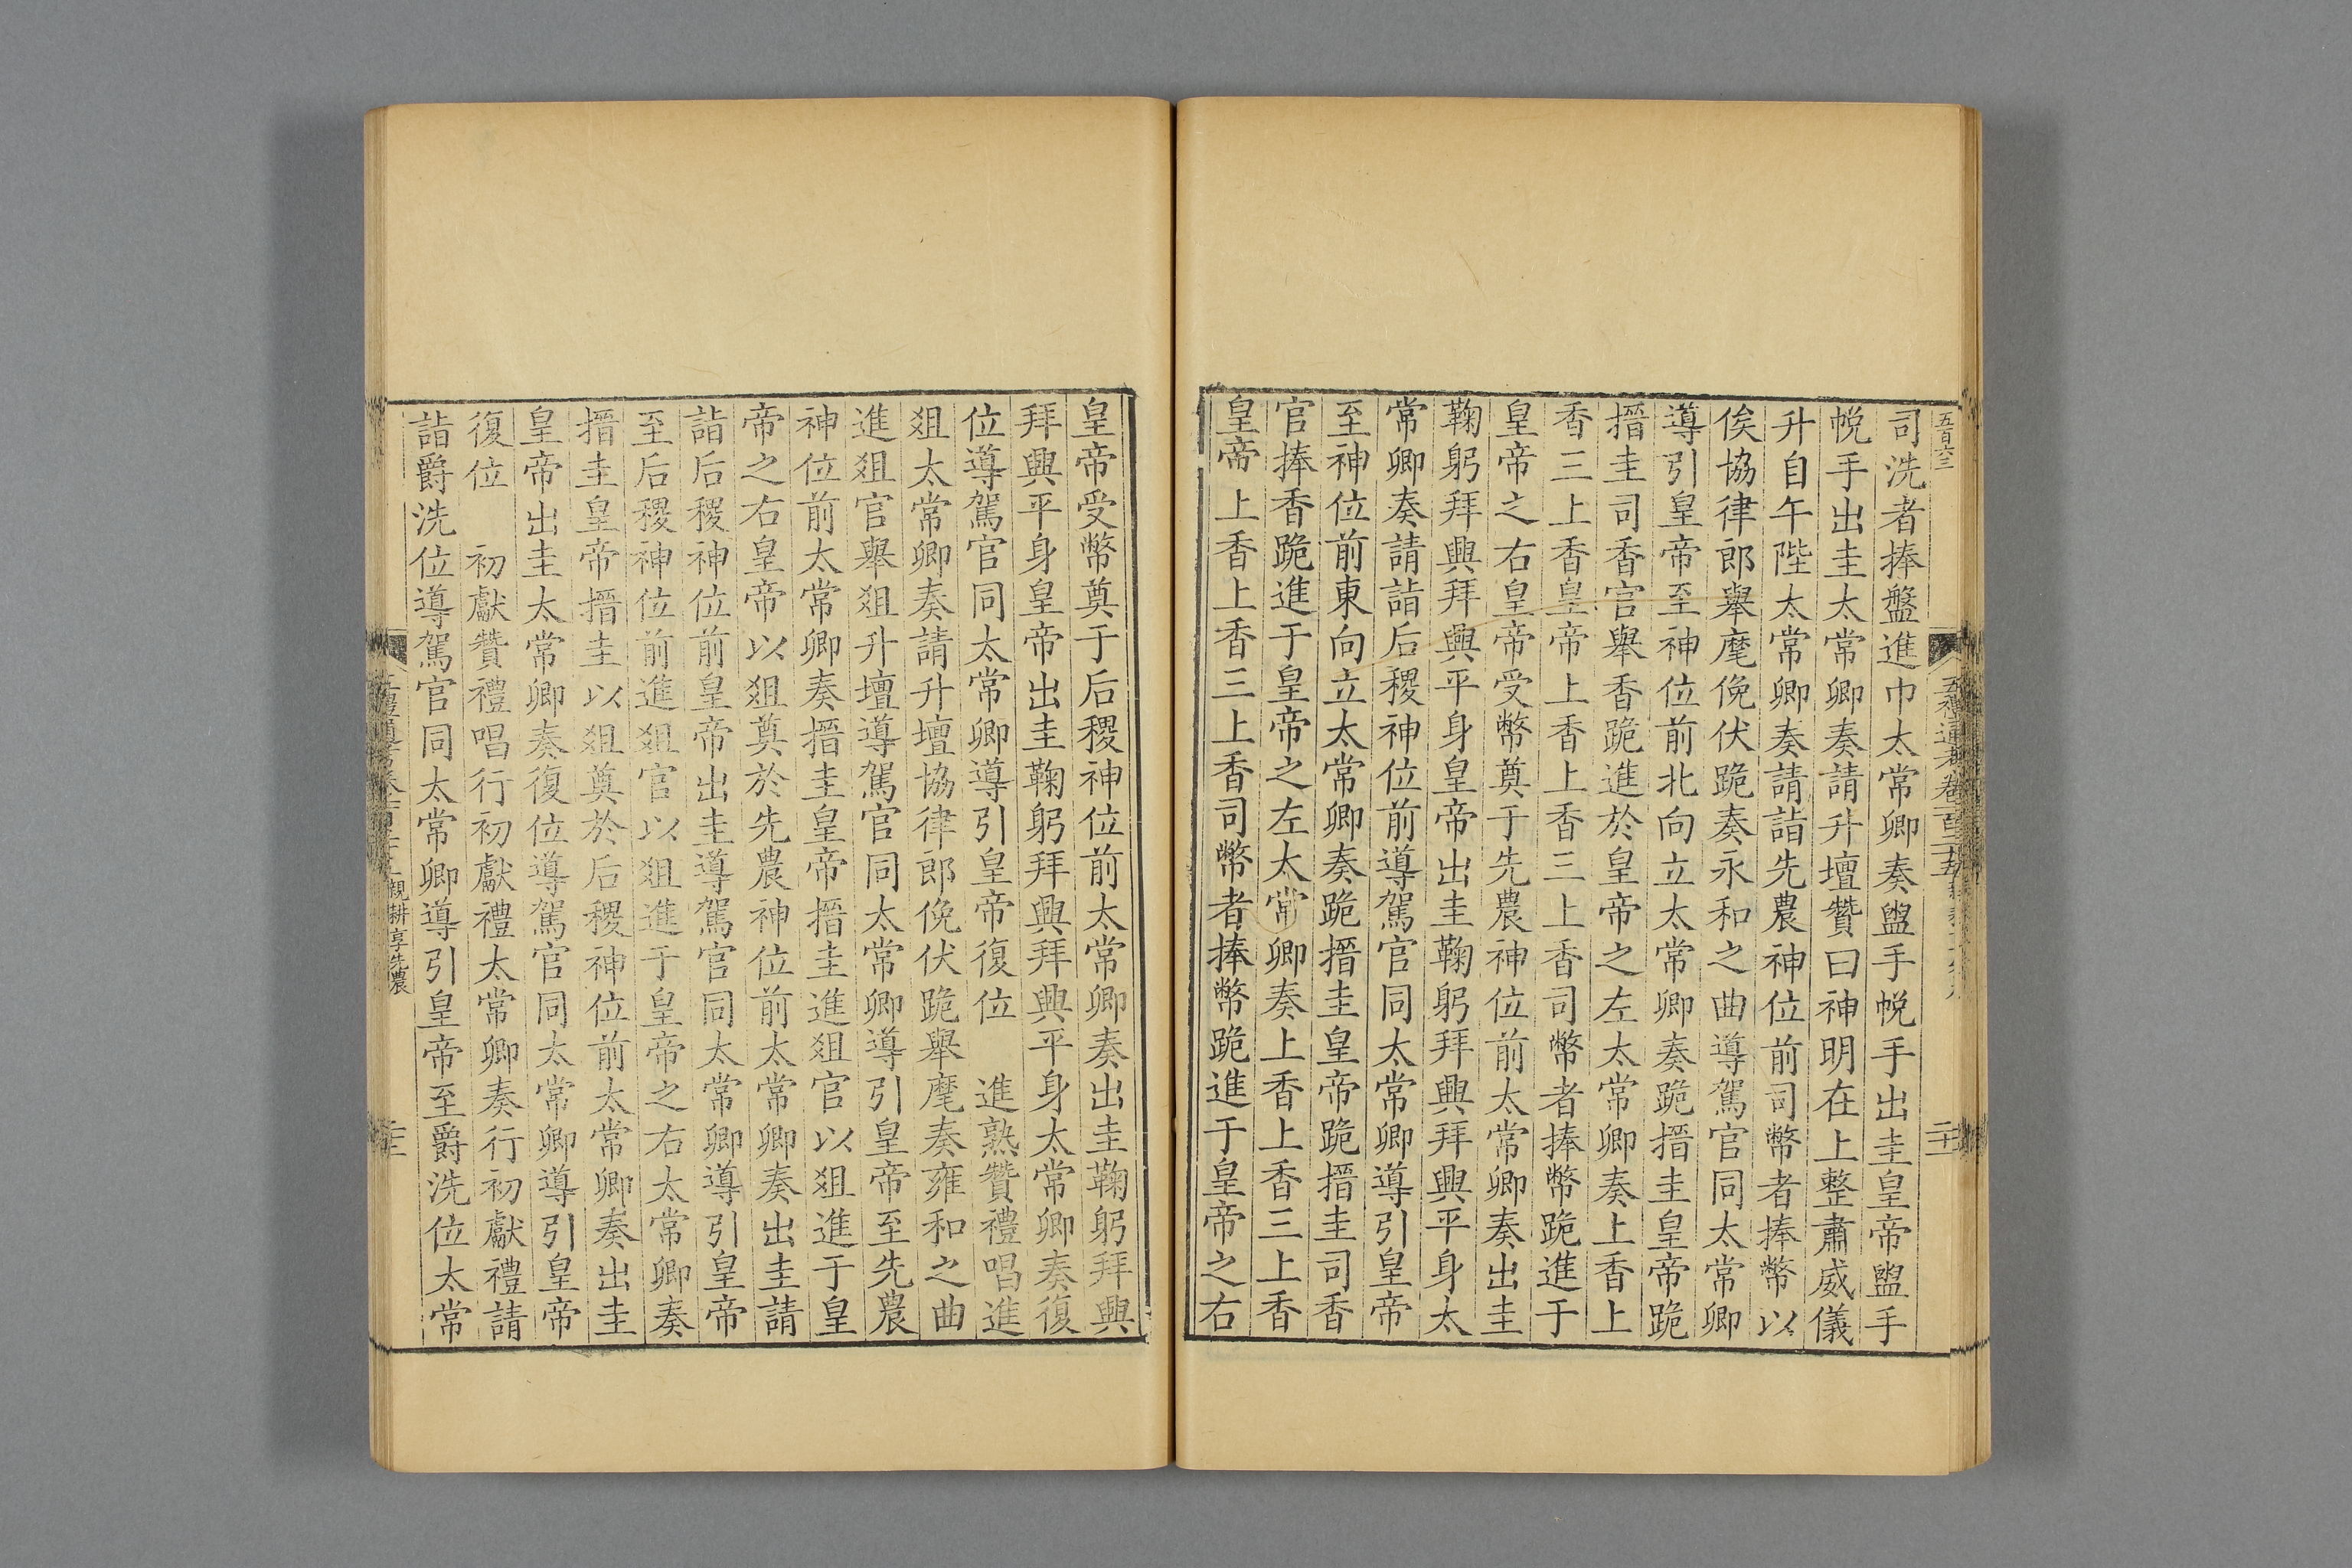 五百六三
司洗者捧盤進巾太常卿奏盥手帨手出圭皇帝盥手
帨手出圭太常卿奏請升壇贊曰神明在上整肅威儀
升自午陛太常卿奏請詣先農神位前司幣者捧幣以
俟協律郎舉麾俛伏跪奏永和之曲導駕官同太常卿
導引皇帝至神位前北向立太常卿奏跪搢圭皇帝跪
搢圭司香官舉香跪進於皇帝之左太常卿奏上香上
香三上香皇帝上香上香三上香司幣者捧幣跪進于
皇帝之右皇帝受幣奠于先農神位前太常卿奏出圭
鞠躬拜興拜興平身皇帝出圭鞠躬拜興拜興平身太
常卿奏請詣后稷神位前導駕官同太常卿導引皇帝
至神位前東向立太常卿奏跪搢圭皇帝跪搢圭司香
官捧香跪進于皇帝之左太常卿奏上香上香三上香
皇帝上香上香三上香司幣者捧幣跪進于皇帝之右
皇帝受幣奠于后稷神位前太常卿奏出圭鞠躬拜興
拜興平身皇帝出圭鞠躬拜興拜興平身太常卿奏復
位導駕官同太常卿導引皇帝復位 進熟贊禮唱進
俎太常卿奏請升壇協律郎俛伏跪舉麾奏雍和之曲
進俎官舉俎升壇導駕官同太常卿導引皇帝至先農
神位前太常卿奏搢圭皇帝搢圭進俎官以俎進于皇
帝之右皇帝以俎奠於先農神位前太常卿奏出圭請
詣后稷神位前皇帝出圭導駕官同太常卿導引皇帝
至后稷神位前進俎官以俎進于皇帝之右太常卿奏
搢圭皇帝搢圭以俎奠於后稷神位前太常卿奏出圭
皇帝出圭太常卿奏復位導駕官同太常卿導引皇帝
復位 初獻贊禮唱行初獻禮太常卿奏行初獻禮請
詣爵洗位導駕官同太常卿導引皇帝至爵洗位太常
親耕享先農